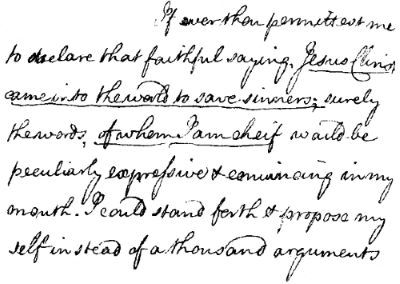 If ever thou permittest me
to declare that faithful saying, Jesus Christ
came into the world to save sinners; surely
the words, of whom I am cheif would be
peculiarly expressive & convincing in my
mouth. I could stand forth & propose my
self in stead of a thousand arguments